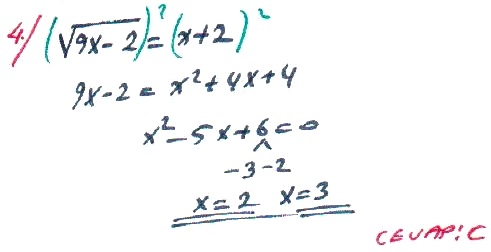 4./ (√9x-2)² = (x+2)²
9x-2 = x²+4x+4
x²-5x+6=0
-3 -2
x=2 x=3
CEVAP: C